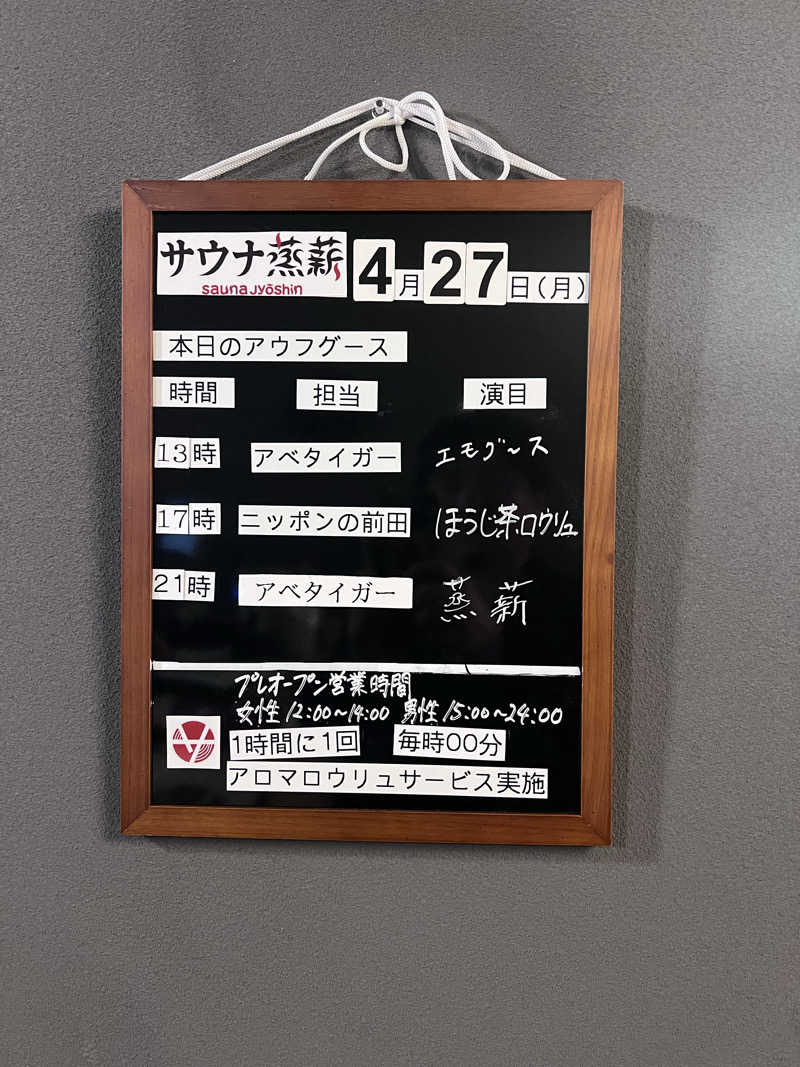 サウナ蒸薪 4月27日(月)
sauna Jyōshin
本日のアウフグース
時間 担当 演目
13時 アベタイガー エモグ〜ス
17時 ニッポンの前田 ほうじ茶ロウリュ
21時 アベタイガー 蒸薪
プレオープン営業時間
女性 12:00〜14:00 男性 15:00〜24:00
1時間に1回 毎時00分
アロマロウリュサービス実施